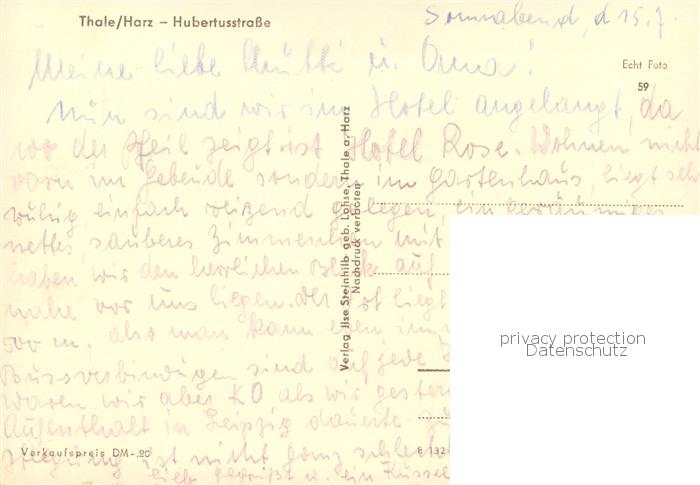 Thale/Harz – Hubertusstraße
Sonnabend, d 15.7.
Meine liebe Mutti u. Oma!
Echt Foto
59
Nun sind wir im Hotel angelangt, da
wo der Pfeil zeigt ist Hotel Rose. Wohnen nicht
vorn im Gebeude sondern im Gartenhaus, liegt sehr
ruhig einfach reizend gelegen, ein geräumiges
nettes sauberes Zimmerchen mit
haben wir den herrlichen Blick auf
nahe vor uns liegen. Der Ort liegt
500 m. also man kann eben
Bussverbindungen sind auf jede
waren wir aber KO als wir gestern
Aufenthalt in Leipzig dauerte
ist nicht ganz schlecht
lieb gegrüßt u. ein Küssel
Verlag Ilse Steinhilb geb. Lohse, Thale a. Harz
Nachdruck verboten
Verkaufspreis DM -.20
B 132
privacy protection
Datenschutz